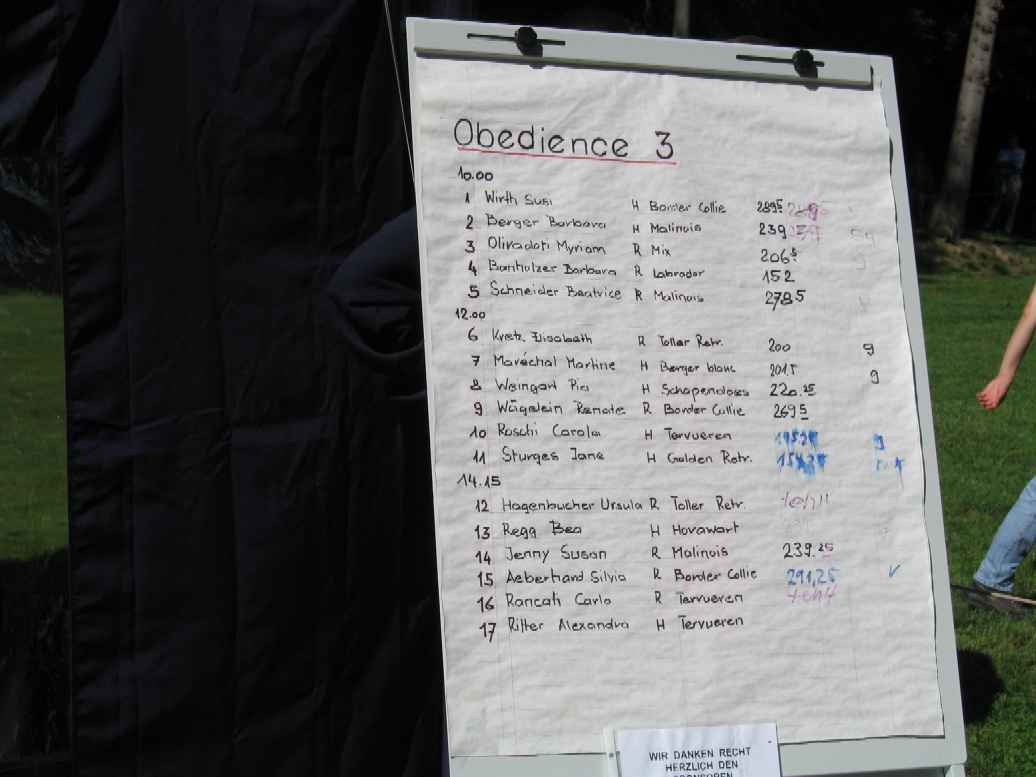 Obedience 3
10.00
1 Wirth Susi H Border Collie 289⁵
2 Berger Barbara H Malinois 239
3 Olivadoti Myriam R Mix 206⁵
4 Banholzer Barbara R Labrador 152
5 Schneider Beatrice R Malinois 278 5
12.00
6 Kretz Elisabeth R Toller Retr. 200 g
7 Maréchal Martine H Berger blanc 201.5 g
8 Weingart Pia H Schapendoes 220.25
9 Renate R Border Collie 269 5
10 Roschi Carola H Tervueren g
11 Sturges Jane H Golden Retr.
14.15
12 Hagenbucher Ursula R Toller Retr.
13 Regg Bea H Hovawart
14 Jenny Susan R Malinois 239.25
15 Aeberhard Silvia R Border Collie 291,25 ✓
16 Roncati Carlo R Tervueren
17 Ritter Alexandra H Tervueren
WIR DANKEN RECHT
HERZLICH DEN
SPONSOREN